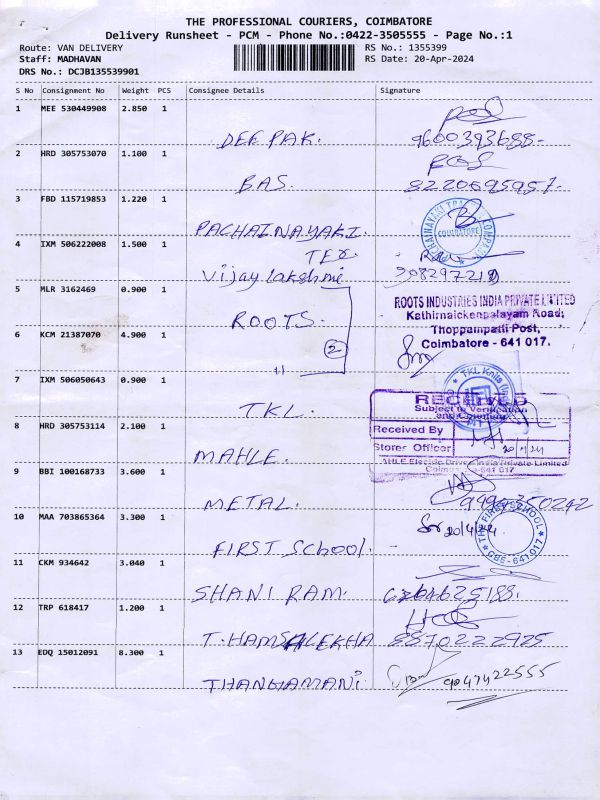 THE PROFESSIONAL COURIERS, COIMBATORE
Delivery Runsheet - PCM - Phone No.:0422-3505555 - Page No.:1
Route: VAN DELIVERY
RS No.: 1355399
Staff: MADHAVAN
RS Date: 20-Apr-2024
DRS No.: DCJB135539901
S No Consignment No Weight PCS Consignee Details Signature
1 MEE 530449908 2.850 1
DEEPAK. 9600393688-
2 HRD 305753070 1.100 1
BAS. 8220695957-
3 FBD 115719853 1.220 1
PACHAINAYAKI. COIMBATORE
TEX.
4 IXM 506222008 1.500 1
Vijay Lakshmi
5 MLR 3162469 0.900 1
ROOTS.
ROOTS INDUSTRIES INDIA PRIVATE LIMITED
Kathirnaickenpalayam Road,
Thoppampatti Post,
Coimbatore - 641 017.
6 KCM 21387070 4.900 1
2
11
7 IXM 506050643 0.900 1
TKL. TKL Knits
RECEIVED
Subject to Verification
Received By
Storer Officer
8 HRD 305753114 2.100 1
MAHLE.
9 BBI 100168733 3.600 1
METAL.
10 MAA 703865364 3.300 1
FIRST SCHOOL. 20/4/24 THE FIRST SCHOOL CBE-641 017
11 CKM 934642 3.040 1
SHANI RAM.
12 TRP 618417 1.200 1
T. HAMSALEKHA 8870222925
13 EDQ 15012091 8.300 1
THANGAMANI 9047422555